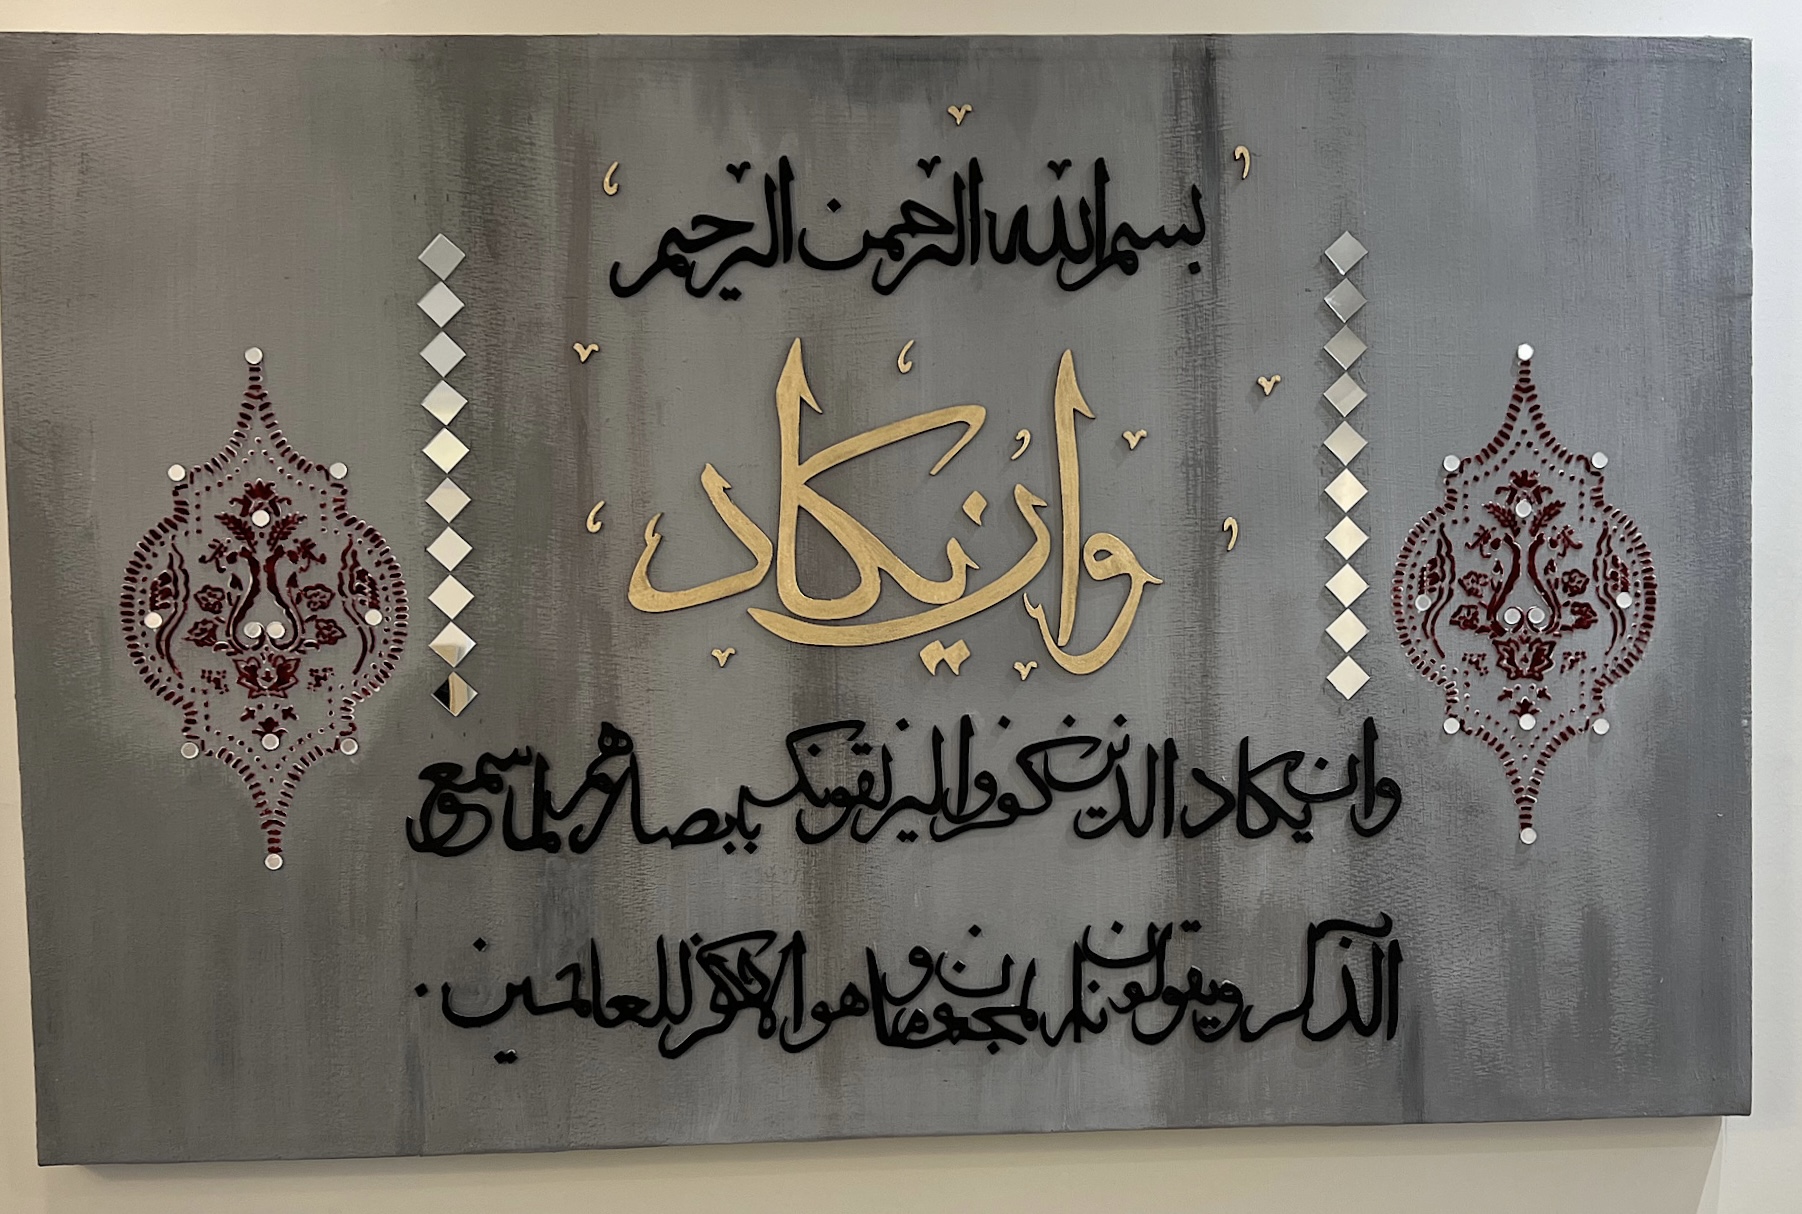 بسم الله الرحمن الرحیم
وان یکاد
وان یکاد الذین کفروا لیزلقونک بابصارهم لما سمعو
الذکر ویقولون انه لمجنون وما هو الا ذکر للعالمین.